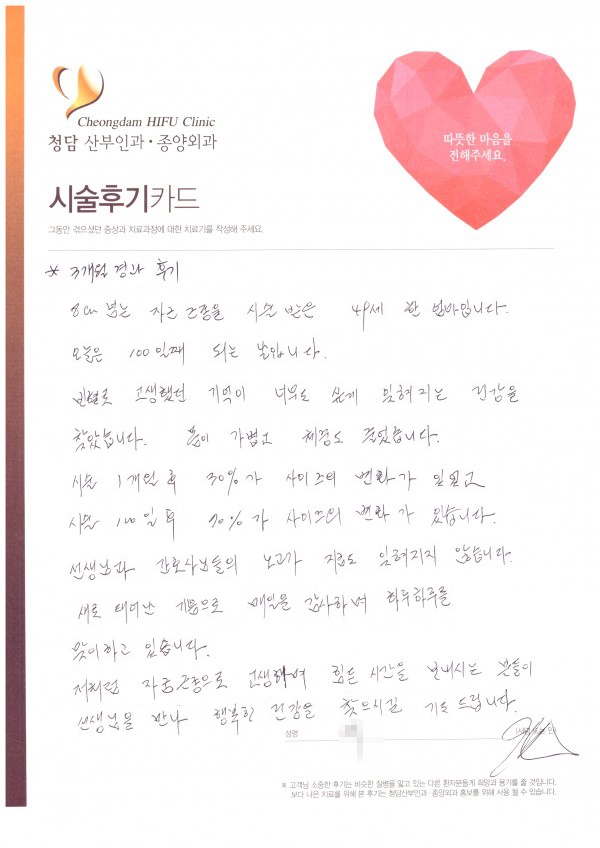 Cheongdam HIFU Clinic
청담 산부인과·종양외과
따뜻한 마음을
전해주세요.
시술후기카드
그동안 겪으셨던 증상과 치료과정에 대한 치료기를 작성해 주세요.
* 3개월 경과 후기
8cm 넘는 자궁근종을 시술 받은 49세 한 엄마입니다.
오늘은 100일째 되는 날입니다.
빈혈로 고생했던 기억이 너무도 쉽게 잊혀지는 건강을
찾았습니다. 몸이 가볍고 체중도 줄었습니다.
시술 1개월 후 30%가 사이즈의 변화가 있었고
시술 100일 후 70%가 사이즈의 변화가 있습니다.
선생님과 간호사님들의 노고가 지금도 잊혀지지 않습니다.
새로 태어난 기분으로 매일을 감사하며 하루하루를
맞이하고 있습니다.
저처럼 자궁근종으로 고생하며 힘든 시간을 보내시는 분들이
선생님을 만나 행복한 건강을 찾으시길 기도 드립니다.
성명
※ 고객님 소중한 후기는 비슷한 질병을 앓고 있는 다른 환자분들게 희망과 용기를 줄 것입니다.
보다 나은 치료를 위해 본 후기는 청담산부인과·종양외과 홍보를 위해 사용 될 수 있습니다.